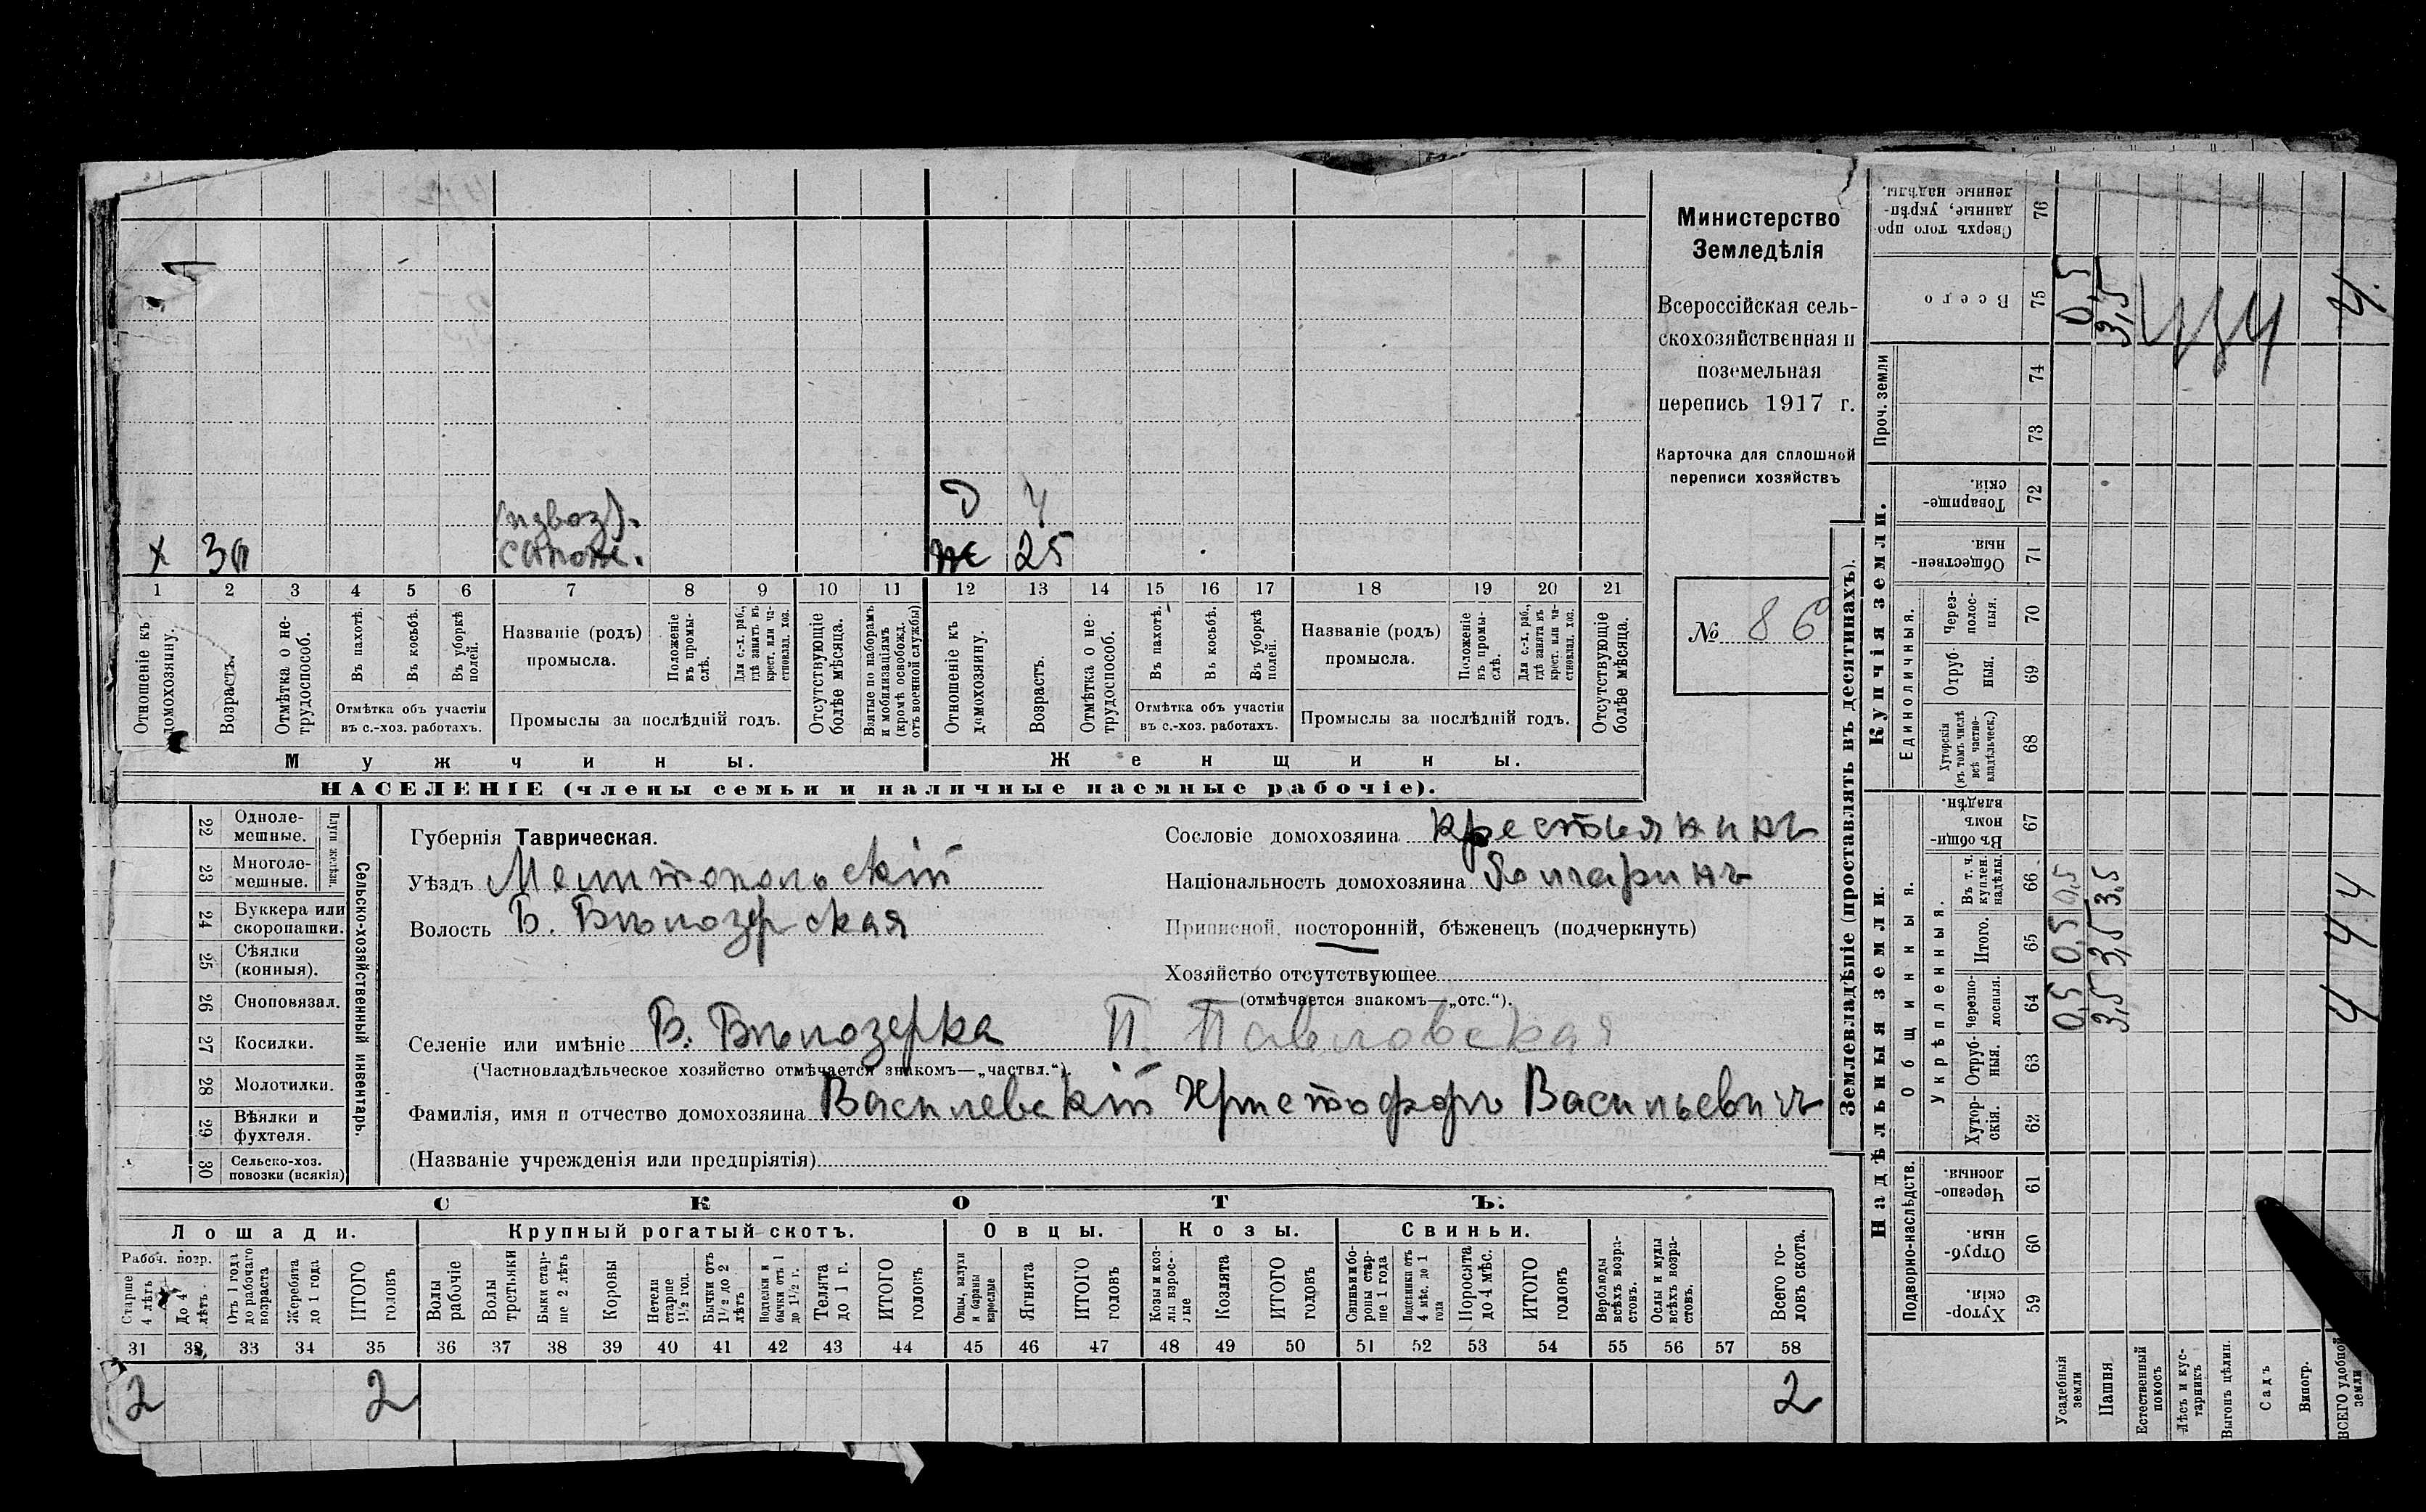 Министерство
Земледѣлія
Всероссійская сель-
скохозяйственная и
поземельная
перепись 1917 г.
Карточка для сплошной
переписи хозяйствъ
№ 86
Д 4
(извоз).
х 30 сапож. ж 25
1 2 3 4 5 6 7 8 9 10 11 12 13 14 15 16 17 18 19 20 21
Отношеніе къ домохозяину.
Возрастъ.
Отмѣтка о не-трудоспособ.
Въ пахотѣ.
Въ косьбѣ.
Въ уборкѣ полей.
Отмѣтка объ участіи
въ с.-хоз. работахъ.
Названіе (родъ)
промысла.
Положеніе въ промы-слѣ.
Для с.-х. раб., гдѣ занятъ въ крест. или ча-стновлад. хоз.
Промыслы за послѣдній годъ.
Отсутствующіе болѣе мѣсяца.
Взятые по наборамъ и мобилизаціямъ (кромѣ освобожд. отъ военной службы)
Отношеніе къ домохозяину.
Возрастъ.
Отмѣтка о не-трудоспособ.
Въ пахотѣ.
Въ косьбѣ.
Въ уборкѣ полей.
Отмѣтка объ участіи
въ с.-хоз. работахъ.
Названіе (родъ)
промысла.
Положеніе въ промы-слѣ.
Для с.-х. раб., гдѣ занята въ крест. или ча-стновлад. хоз.
Промыслы за послѣдній годъ.
Отсутствующіе болѣе мѣсяца.
Мужчины. Женщины.
НАСЕЛЕНІЕ (члены семьи и наличные наемные рабочіе).
Сельско-хозяйственный инвентарь.
Плуги желѣзн.
22 Одноле-мешные.
23 Многоле-мешные.
24 Буккера или скоропашки.
25 Сѣялки (конныя).
26 Сноповязал.
27 Косилки.
28 Молотилки.
29 Вѣялки и фухтеля.
30 Сельско-хоз. повозки (всякія)
Губернія Таврическая.
Уѣздъ Мелитопольскій
Волость Б. Бѣлозерская
Сословіе домохозяина крестьянинъ
Національность домохозяина Болгаринъ
Приписной, посторонній, бѣженецъ (подчеркнуть)
Хозяйство отсутствующее
(отмѣчается знакомъ—„отс.“).
Селеніе или имѣніе Б. Бѣлозерка П. Павловская
(Частновладѣльческое хозяйство отмѣчается знакомъ—„частвл.“).
Фамилія, имя и отчество домохозяина Василевскій Христофоръ Васильевичъ
(Названіе учрежденія или предпріятія)
СКОТЪ.
Лошади. Крупный рогатый скотъ. Овцы. Козы. Свиньи.
Рабоч. возр.
Старше 4 лѣтъ
До 4 лѣтъ
Отъ 1 года до рабочаго возраста
Жеребята до 1 года
ИТОГО головъ
Волы рабочіе
Волы третьяки
Быки стар-ше 2 лѣтъ
Коровы
Нетели старше 1 1/2 год.
Бычки отъ 1 1/2 до 2 лѣтъ
Подтелки и бычки отъ 1 до 1 1/2 г.
Телята до 1 г.
ИТОГО головъ
Овцы, валухи и бараны взрослые
Ягнята
ИТОГО головъ
Козы и коз-лы взрос-лые
Козлята
ИТОГО головъ
Свиньи и бо-ровы стар-ше 1 года
Подсвинки отъ 4 мѣс. до 1 года
Поросята до 4 мѣс.
ИТОГО головъ
Верблюды всѣхъ возра-стовъ.
Ослы и мулы всѣхъ возра-стовъ.
Всего го-ловъ скота.
31 32 33 34 35 36 37 38 39 40 41 42 43 44 45 46 47 48 49 50 51 52 53 54 55 56 57 58
2 2 2
Землевладѣніе (проставлять въ десятинахъ).
Надѣльныя земли.
Купчія земли.
Проч. земли
Подворно-наслѣдств.
Общинныя.
Укрѣпленныя.
Единоличныя.
Хутор-скія. 59
Отруб-ныя. 60
Черезпо-лосныя. 61
Хутор-скія. 62
Отруб-ныя. 63
Черезпо-лосныя. 64
Итого. 65
Въ т. ч. куплен. надѣлы. 66
Въ общи-номъ владѣн. 67
Хуторскія (въ томъ числѣ всѣ частно-владѣльческ.) 68
Отруб-ныя. 69
Через-полос-ныя. 70
Обществен-ныя. 71
Товарище-скія. 72
73
74
Всего 75
Сверхъ того про-данные, укрѣп-ленные надѣлы. 76
Усадебныя земли 0,5 0,5 0,5 0,5
Пашня 3,5 3,5 3,5 3,5
Естественный покосъ
Лѣсъ и кус-тарникъ
Выгонъ цѣлин.
Садъ
Виногр.
ВСЕГО удобной земли 4 4 4 4